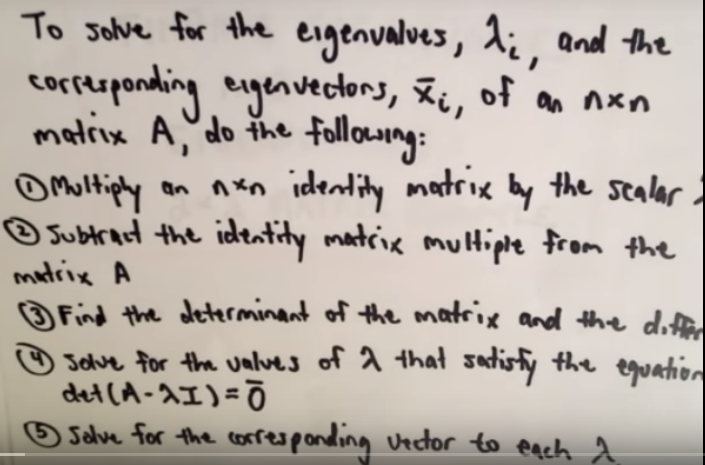 To solve for the eigenvalues, λᵢ, and the
corresponding eigenvectors, x̄ᵢ, of an n×n
matrix A, do the following:
① Multiply an n×n identity matrix by the scalar
② Subtract the identity matrix multiple from the
matrix A
③ Find the determinant of the matrix and the differ
④ Solve for the values of λ that satisfy the equation
det(A-λI)=0̄
⑤ Solve for the corresponding vector to each λ